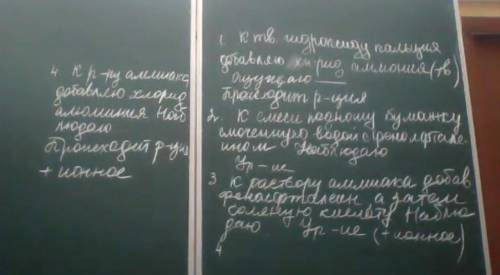 4. К р-ру аммиака
добавляю хлорид
алюминия Наб
людаю
Происходит р-ция
+ ионное
1. К тв. гидроксиду кальция
добавляю хлорид аммония (тв)
Ощущаю ___
Происходит р-ция
2. К смеси подношу бумажку
смоченную водой с фенолфтале-
ином Наблюдаю
Ур-ие
3. К раствору аммиака добав
фенолфталеин а затем
соляную кислоту Наблю
даю Ур-ие (+ ионное)
4